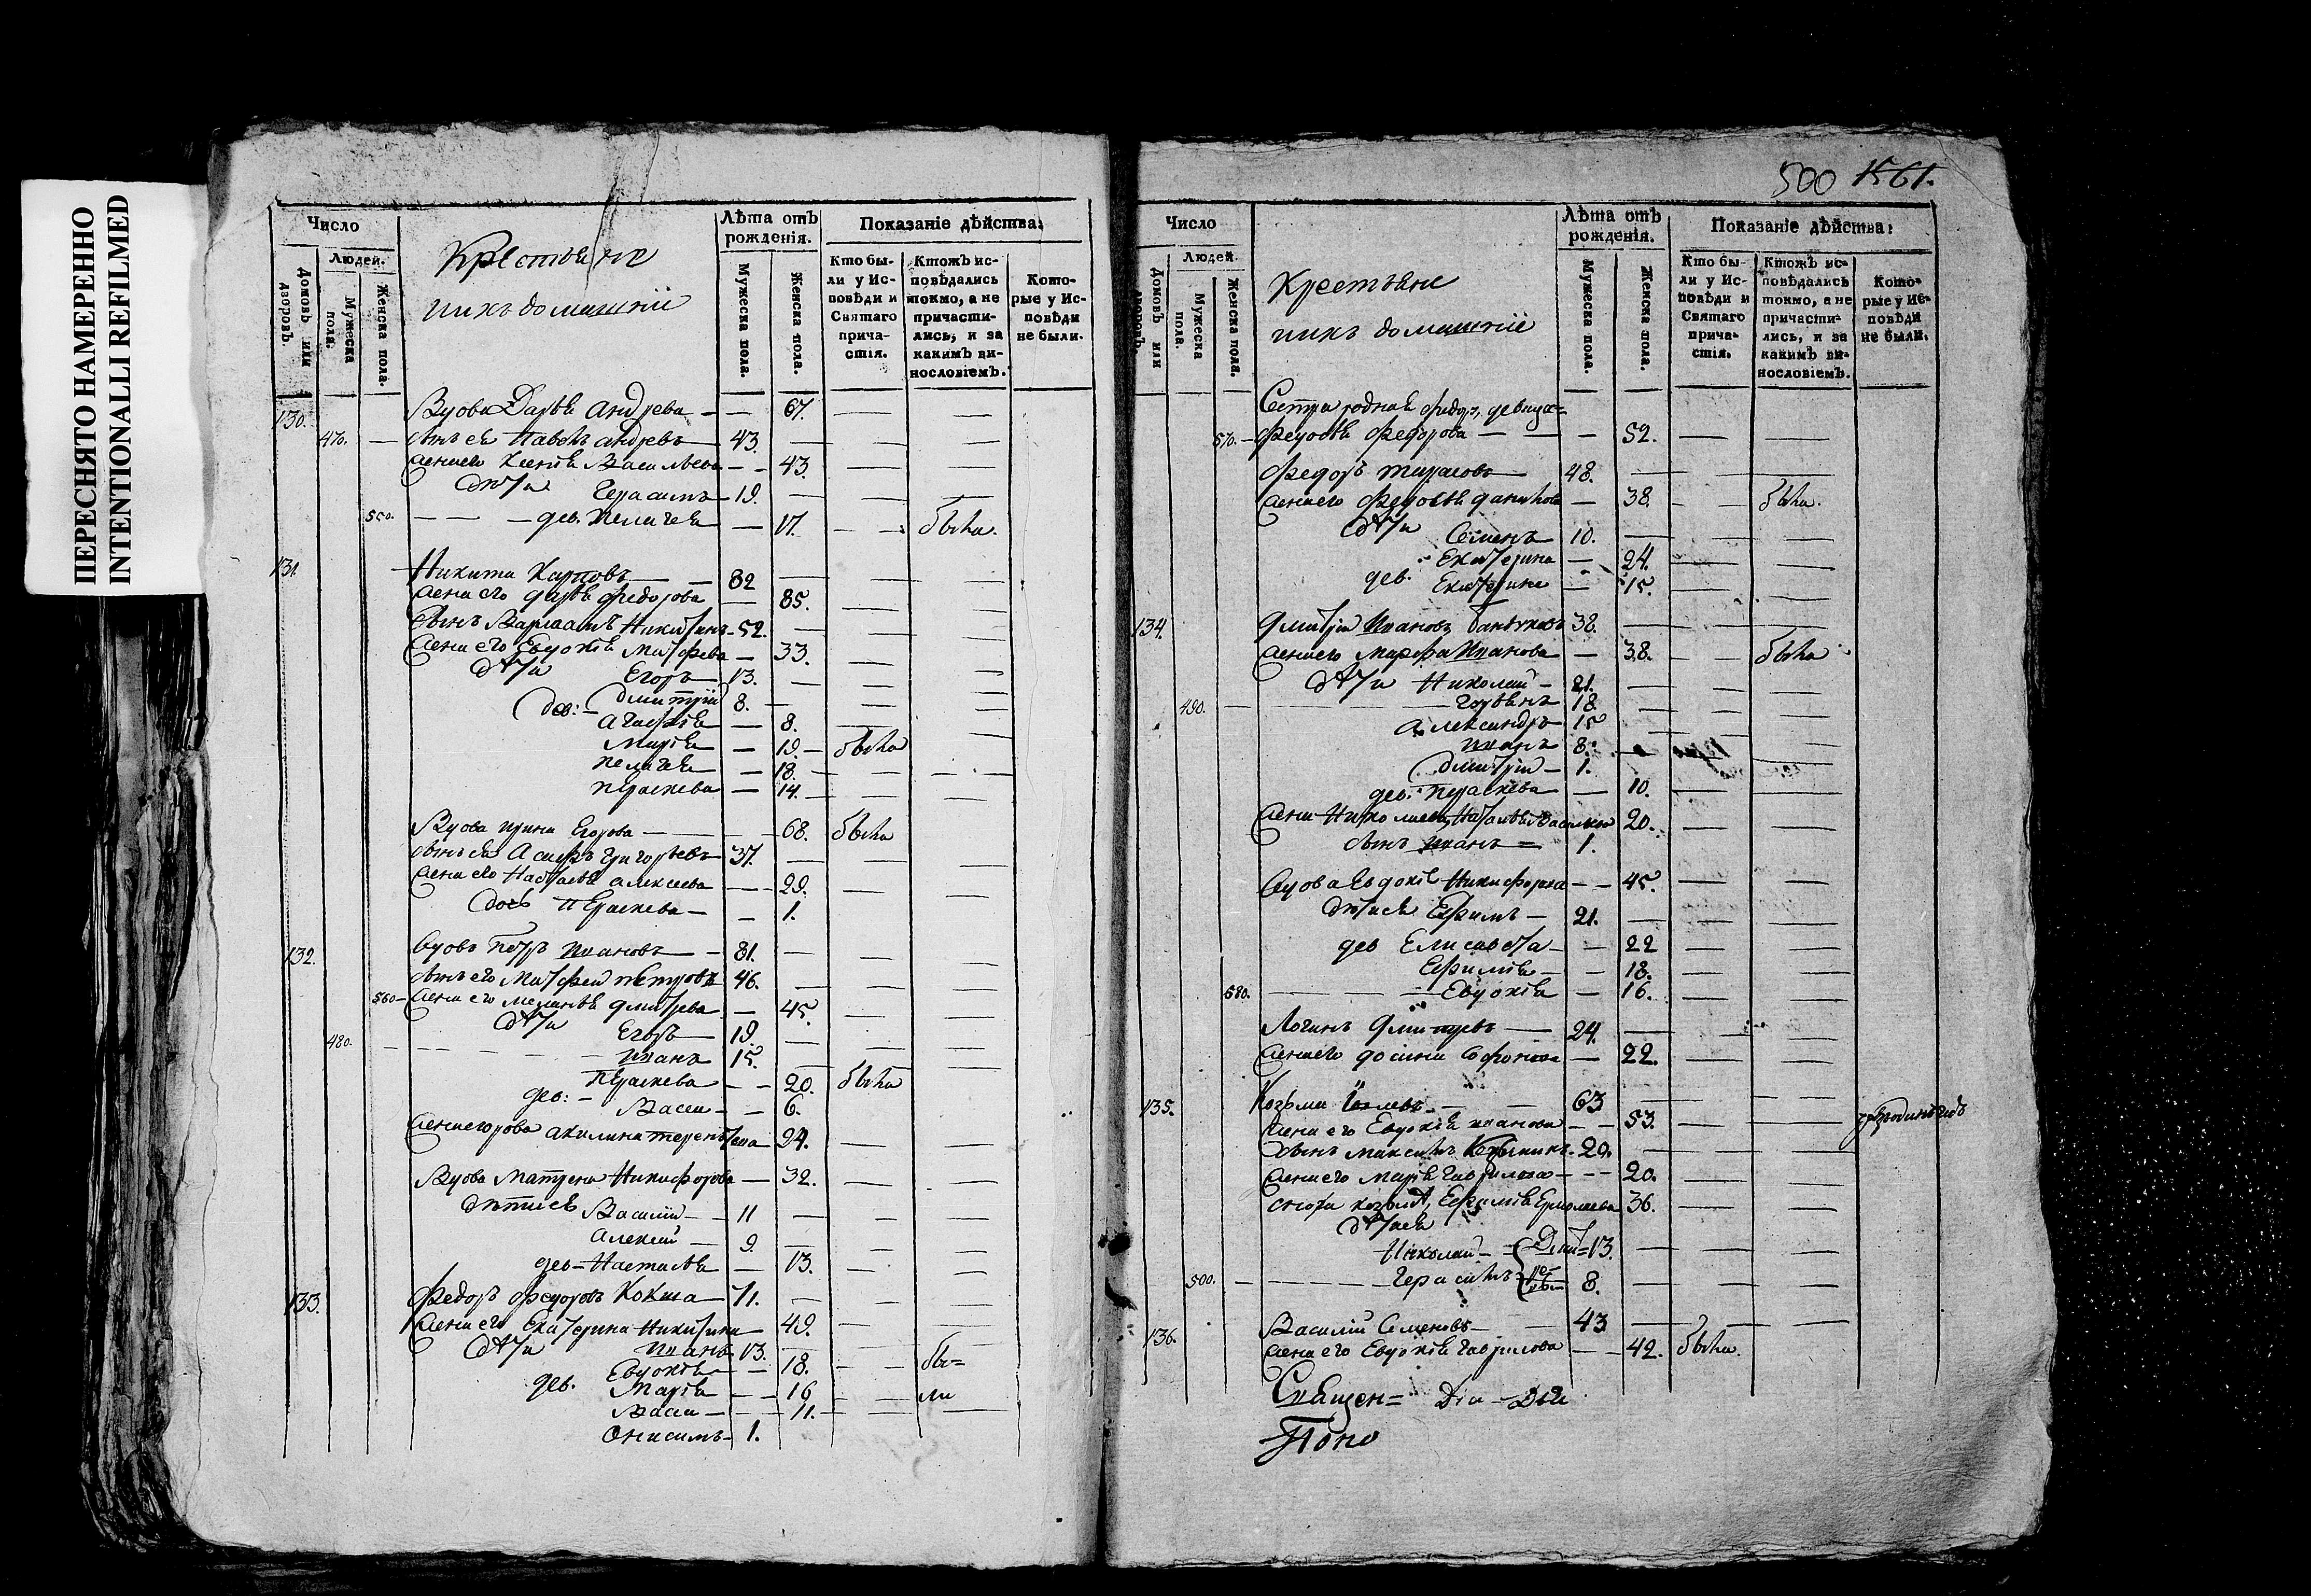 ПЕРЕСНЯТО НАМЕРЕННО
INTENTIONALLI REFILMED
Число
Людей.
Домовъ или дворовъ.
Мужеска пола.
Женска пола.
Крестьяне
ихъ домашніе
Лѣта отъ рожденія.
Мужеска пола.
Женска пола.
Показаніе дѣйства:
Кто бы-
ли у Ис-
повѣди и
Святаго
прича-
стія.
Ктожъ ис-
повѣдались
токмо, а не
причасти-
лись, и за
какимъ ви-
нословіемъ.
Кото-
рые у Ис-
повѣди
не были.
130. Вдова Дарья Андрева — — 67.
470. — сынъ ея Павелъ Андревъ — 43.
жена его Ксенія Васильева — — 43.
дѣти Герасимъ — 19.
550. — — — дев. Пелагея — 17. были.
131. Никита Карповъ — 82
жена его Дарья Федорова — 85.
сынъ Варлаамъ Никитинъ — 52.
жена его Евдокія Матфева — 33.
дѣти Егоръ — 13.
Дмитрій 8.
Агафія — 8.
Марія — 19 — были
Пелагея — 18.
Параскева — 14.
Вдова Ирина Егорова — 68. были
сынъ ея Асафъ Григорьевъ 37.
жена его Настасья Алексеева — 29.
дочь Параскева — 1.
132. Вдовъ Петръ Ивановъ — 81.
сынъ его Матфей Петровъ 46.
560 — жена его Меланья Дмитрева — 45.
дѣти Егоръ — 19.
480. Иванъ 15.
Параскева — — 20. были
дев: — Васса — — 6.
жена Егорова Акилина Терентьева 24.
Вдова Матрена Никифорова — 32.
дѣти ея Василій — 11
Алексій — 9.
дев — Настасья — 13.
133. Федоръ Федоровъ Кокша — 71.
жена его Екатерина Никитина 49.
дѣти Иванъ 13.
Евдокія — 18. бы=
дев. Марія — — 16 ли
Васса — — 11.
Онисимъ — 1.
500 1561.
Число
Людей.
Домовъ или дворовъ.
Мужеска пола.
Женска пола.
Крестьяне
ихъ домашніе
Лѣта отъ рожденія.
Мужеска пола.
Женска пола.
Показаніе дѣйства:
Кто бы-
ли у Ис-
повѣди и
Святаго
прича-
стія.
Ктожъ ис-
повѣдались
токмо, а не
причасти-
лись, и за
какимъ ви-
нословіемъ.
Кото-
рые у Ис-
повѣди
не были.
Сестра родная Федор. девица=
570. — Федосья Федорова — — — 52.
Федоръ Тарасовъ — 48.
жена его Федосья Данилова — 38. были.
дѣти Семенъ 10.
Екатерина — 24.
дев. Екатерина — 15.
134. Дмитрій Ивановъ 38.
жена его Марфа Иванова — 38. были
дѣти Николай — 21.
490. 18.
Александръ 15
Иванъ 8.
Дмитрій — 1.
дев: Параскева — 10.
жена Николаева Наталья 20.
сынъ Иванъ = 1.
Вдова Евдокія Никифорова — — 45.
дѣти ея Ефимъ — 21.
дев Елисавета — — 22
Ефимія — — 18.
580. Евдокія — 16.
Логинъ Дмитревъ — 24.
жена его Сафонова — 22.
135. Козьма — 63
жена его Евдокія Иванова — — 53.
сынъ Максимъ 20.
жена его Марія Гаврилова — — 20.
сноха Ефимія Ермолаева 36.
дѣти ея
Николай 13.
500. Герасимъ 8.
136. Василій Семеновъ — 43
жена его Евдокія Гаврилова — — 42. были.
Священ=